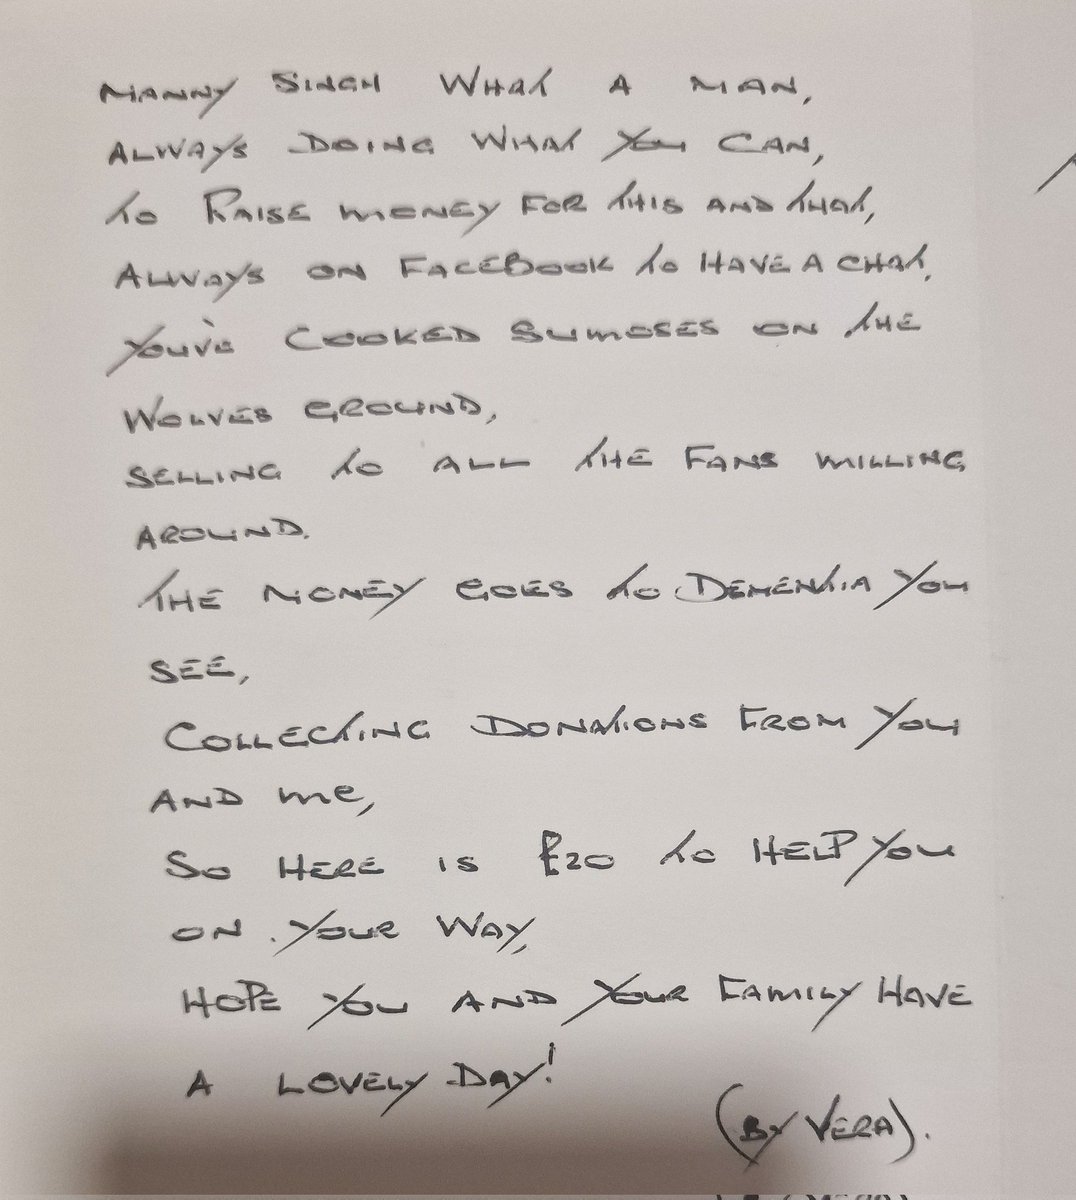 MANNY SINGH WHAT A MAN,
ALWAYS DOING WHAT YOU CAN,
TO RAISE MONEY FOR THIS AND THAT,
ALWAYS ON FACEBOOK TO HAVE A CHAT,
YOU'VE COOKED SUMOSES ON THE
WOLVES GROUND,
SELLING TO ALL THE FANS MILLING
AROUND.
THE MONEY GOES TO DEMENTIA YOU
SEE,
COLLECTING DONATIONS FROM YOU
AND me,
SO HERE IS £20 TO HELP YOU
ON YOUR WAY,
HOPE YOU AND YOUR FAMILY HAVE
A LOVELY DAY!
(BY VERA).